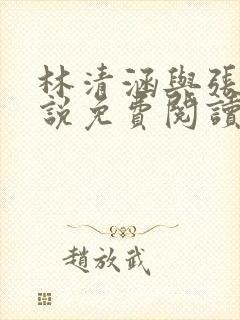 林清涵與張
說免費閱讀
趙放武